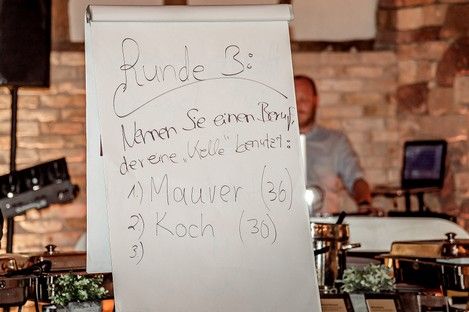 Runde 3:
Nennen Sie einen Beruf,
der eine "Kelle" benutzt:
1) Maurer (36)
2) Koch (30)
3)